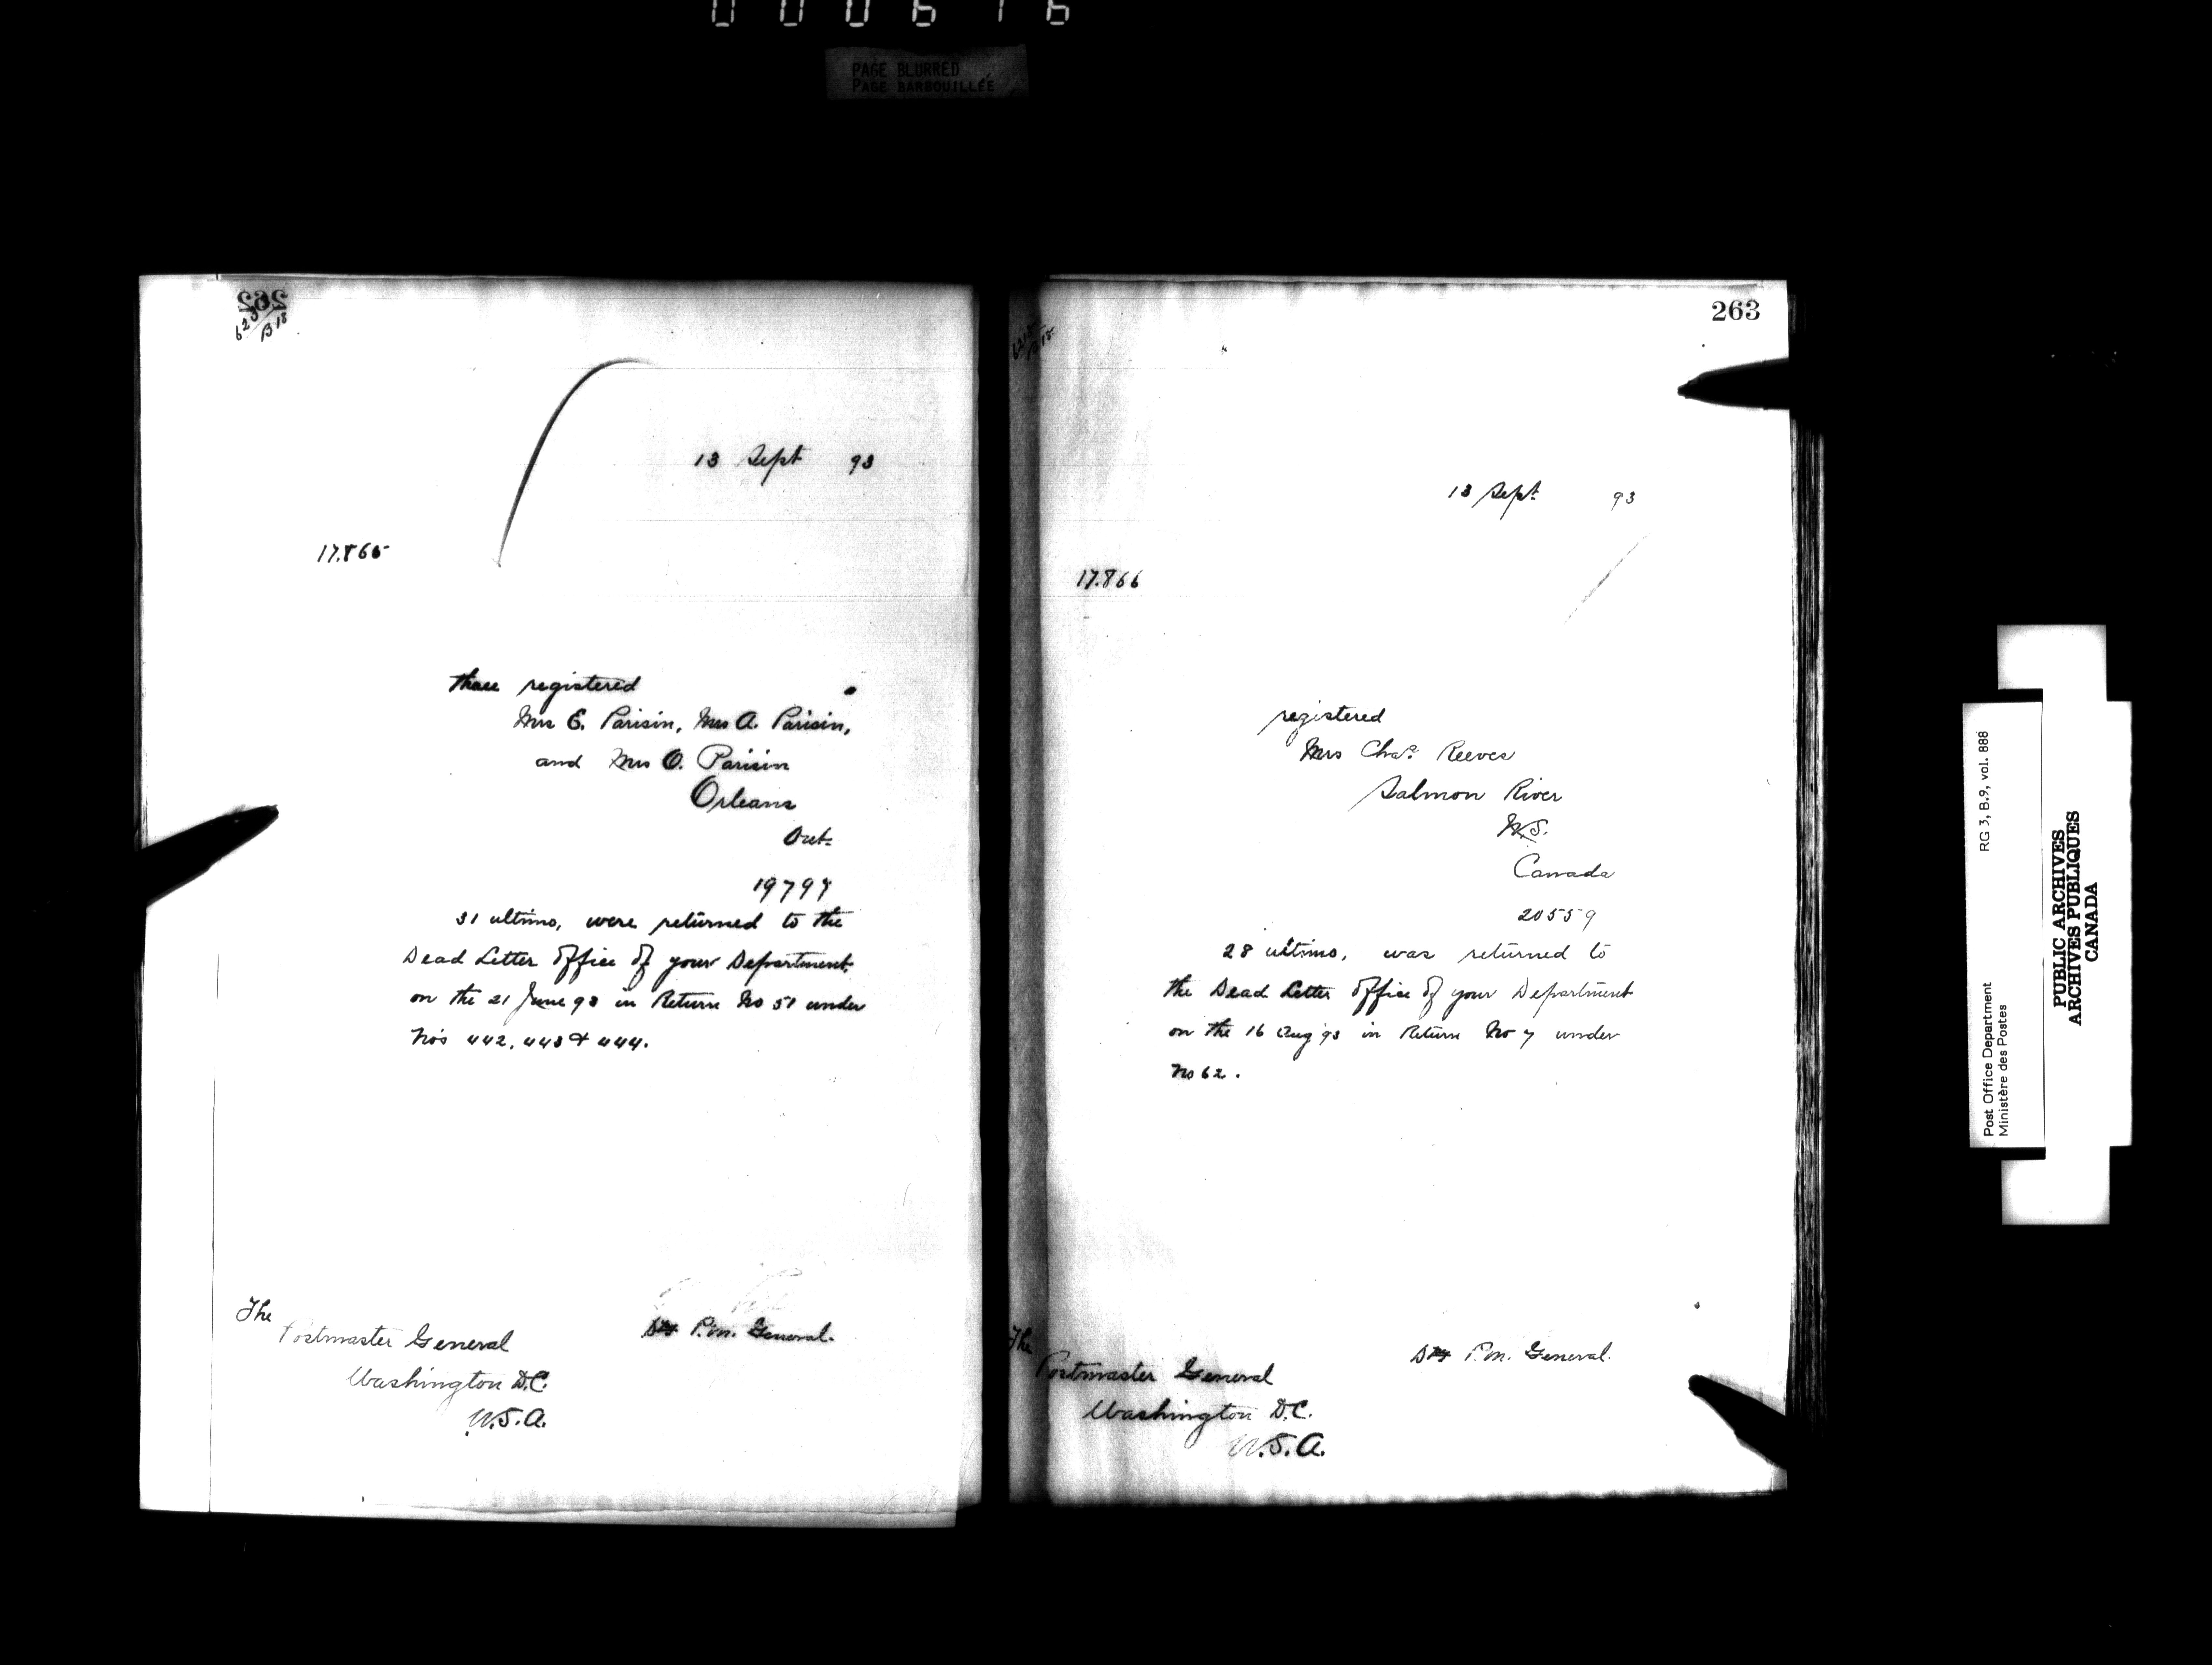 000616
PAGE BLURRED
PAGE BARBOUILLÉE
262
13 Sept 93
17.865
three registered
Mrs E. Parisin, Mrs A. Parisin,
and Mrs O. Parisin
Orleans
Ont.
19797
31 ultimo, were returned to the
Dead Letter Office of your Department
on the 21 June 93 in Return No 51 under
No's 442, 443 & 444.
Dty P.M. General.
The
Postmaster General
Washington D.C.
U.S.A.
263
13 Sept. 93
17.866
registered
Mrs Chas. Reeves
Salmon River
N.S.
Canada
20559
28 ultimo, was returned to
the Dead Letter Office of your Department
on the 16 Aug 93 in Return No 7 under
No 62.
Dty P.M. General.
The
Postmaster General
Washington D.C.
U.S.A.
Post Office Department RG 3, B.9, vol. 888
Ministère des Postes
PUBLIC ARCHIVES
ARCHIVES PUBLIQUES
CANADA